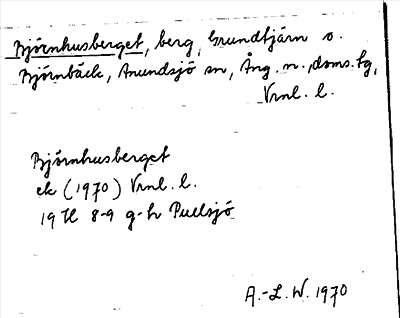 Björnhusberget, berg, Grundtjärn o.
Björnbäck, Anundsjö sn, Ång. n., doms. fg,
Vrnl. l.
Björnhusberget
ek (1970) Vrnl. l.
19 H 8-9 g-h Pullsjö
A.-L. W. 1970